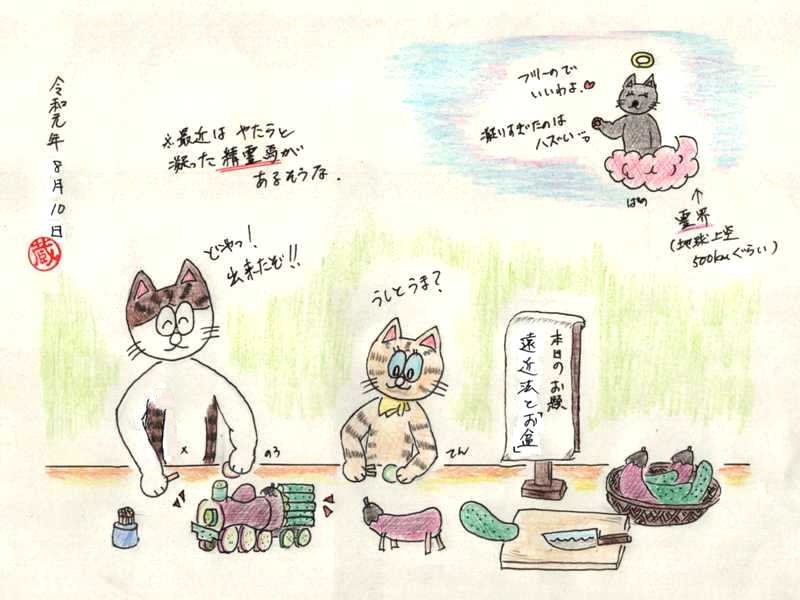 令和元年8月10日
蔵
※最近は やたらと
凝った 精霊馬が
あるそうな.
フツーので
いいわよ.
凝りすぎたのは
ハズい…
はめ
↑
霊界
(地球上空
500kmぐらい)
どやっ!
出来たぞ!!
うしとうま?
本日のお題
遠近法と「お盆」
のろ
てん